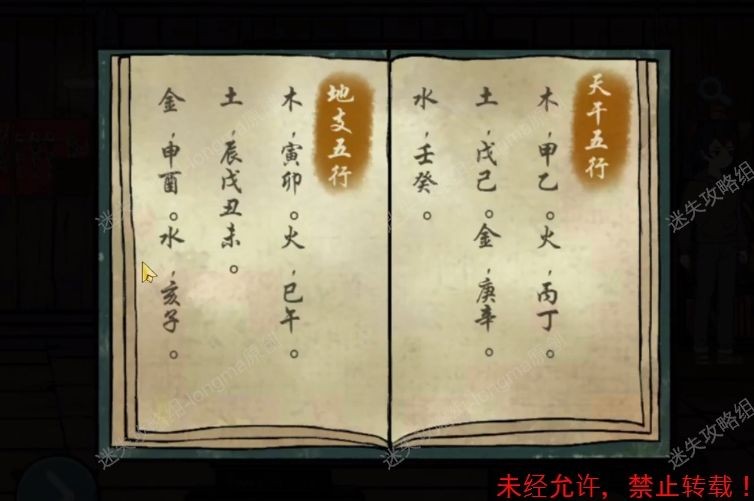 天干五行
木，甲乙。火，丙丁。
土，戊己。金，庚辛。
水，壬癸。
地支五行
木，寅卯。火，巳午。
土，辰戌丑未。
金，申酉。水，亥子。
迷失攻略组-longma原创
迷失攻略组-longma原创
迷失攻略组
迷失攻略组
未经允许，禁止转载！